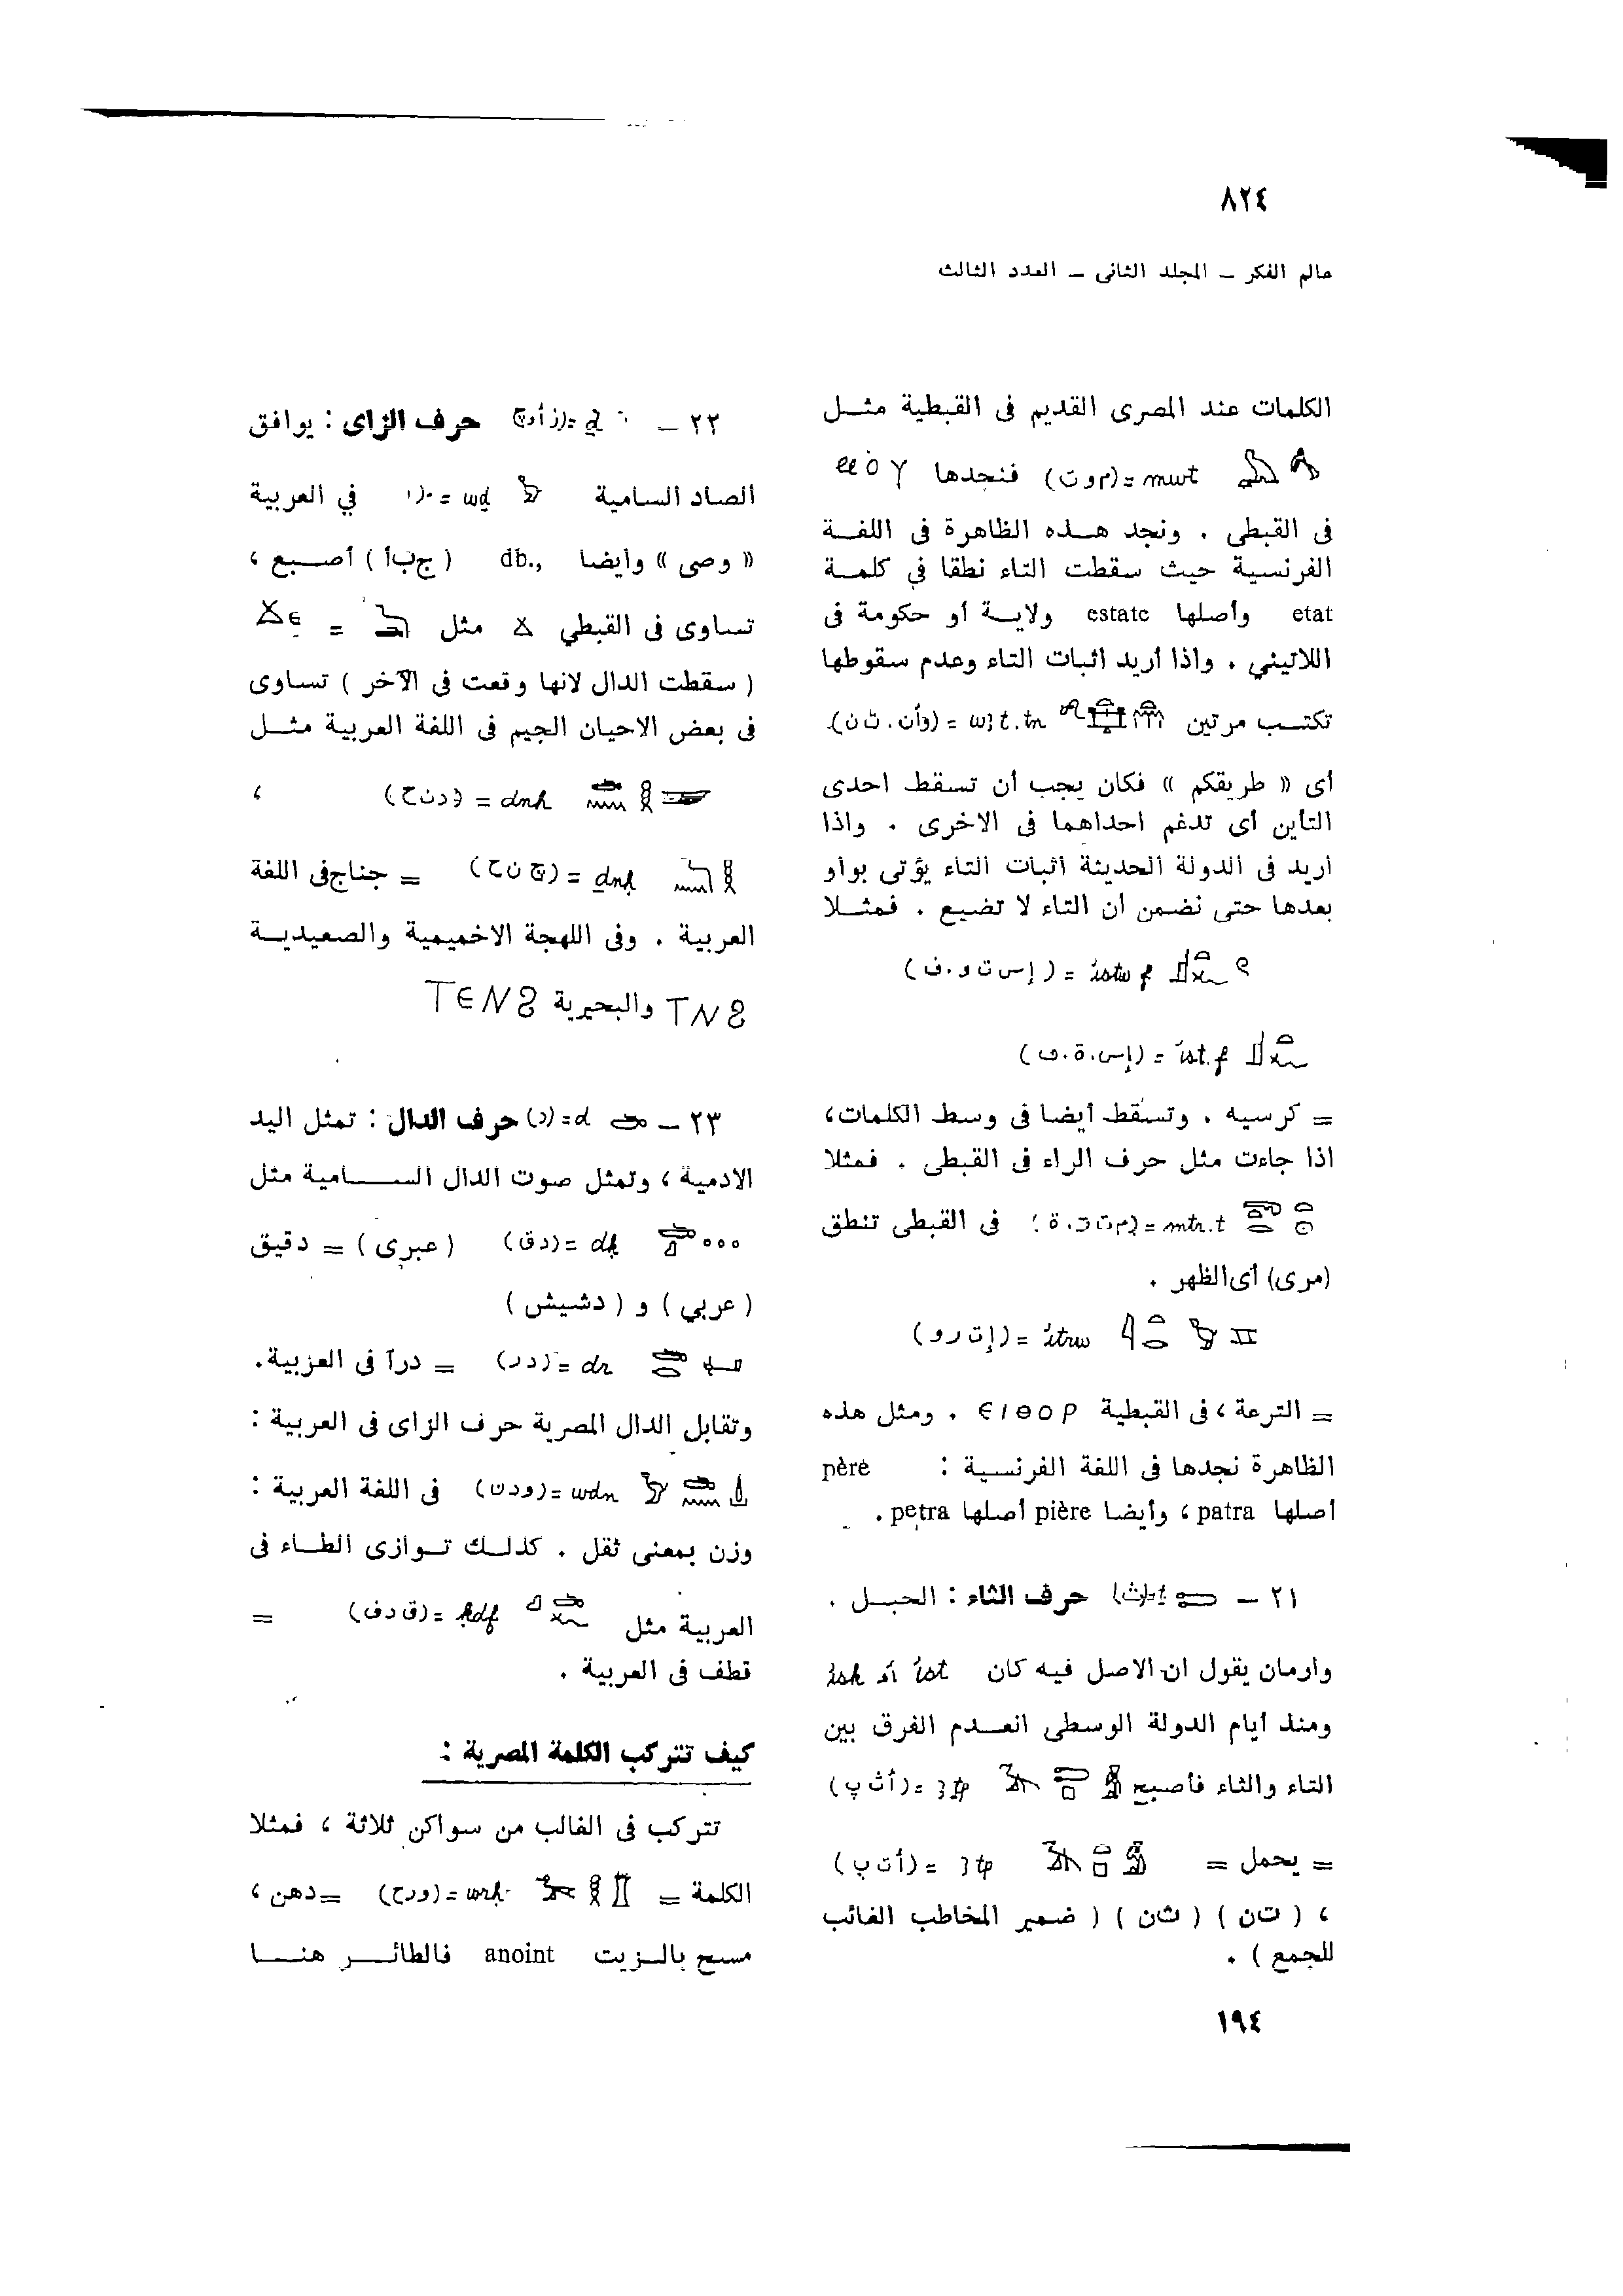 ٨٢٤
عالم الفكر – المجلد الثانى – العدد الثالث
الكلمات عند المصرى القديم فى القبطية مثـل
mwt = (م و ت) فنجدها
فى القبطى . ونجد هـذه الظاهرة فى اللغـة
الفرنسية حيث سقطت التاء نطقا في كلمـة
etat وأصلها estate ولايـة أو حكومة فى
اللاتيني . واذا أريد اثبات التاء وعدم سقوطها
تكتـب مرتين w3t.tn = (وأن . ث ن).
أى « طريقكم » فكان يجب أن تسقط احدى
التأين أى تدغم احداهما فى الاخرى . واذا
اريد فى الدولة الحديثة اثبات التاء يؤتى بواو
بعدها حتى نضمن أن التاء لا تضيع . فمثـلا
istw f = (إ س ت و . ف)
ist.f = (إ س . ة . ف)
= كرسيه . وتسقط أيضا فى وسط الكلمات،
اذا جاءت مثل حرف الراء فى القبطى . فمثلا
mtr.t = (م ت ر . ة) فى القبطى تنطق
(مرى) أى الظهر .
itrw = (إ ت ر و)
= الترعة ، فى القبطية ⲉⲓⲑⲟⲣ . ومثل هذه
الظاهرة نجدها فى اللغة الفرنسية : père
أصلها patra ، وأيضا pière أصلها petra .
٢١ – ṯ = (ث) حرف الثاء : الحبـل .
وارمان يقول ان الاصل فيه كان ist أو isk
ومنذ أيام الدولة الوسطى انعـدم الفرق بين
التاء والثاء فأصبح 3ṯp = (أ ث پ)
= يحمل = 3tp = (أ ت پ)
، ( ت ن ) ( ث ن ) ( ضمير المخاطب الغائب
للجمع ) .
١٩٤
٢٢ – حرف الزاى : يوافق
الصاد السامية wḏ = في العربية
« وصى » وأيضا db., ( ج ب أ ) أصـبع ،
تساوى فى القبطي ϫ مثل = ϫⲉ
( سقطت الدال لانها وقعت فى الآخر ) تساوى
فى بعض الاحيان الجيم فى اللغة العربية مثـل
dnḥ = (د ن ح) ،
ḏnḥ = (ج ن ح) = جناح فى اللغة
العربية . وفى اللهجة الاخميمية والصعيديـة
ⲧⲛϩ والبحيرية ⲧⲉⲛϩ
٢٣ – d = (د) حرف الدال : تمثل اليد
الادمية ، وتمثل صوت الدال السـامية مثل
dḳ = (د ق) ( عبرى ) = دقيق
( عربي ) و ( دشيش )
dr = (د ر) = درآ فى العربية .
وتقابل الدال المصرية حرف الزاى فى العربية :
wdn = (و د ن) فى اللغة العربية :
وزن بمعنى ثقل . كذلـك تـوازى الطـاء فى
العربية مثل ḳdf = (ق د ف) =
قطف فى العربية .
كيف تتركب الكلمة المصرية :
تتركب فى الغالب من سواكن ثلاثة ، فمثلا
الكلمة = wrḥ = (و ر ح) = دهن ،
مسح بالـزيت anoint فالطائـر هنـا